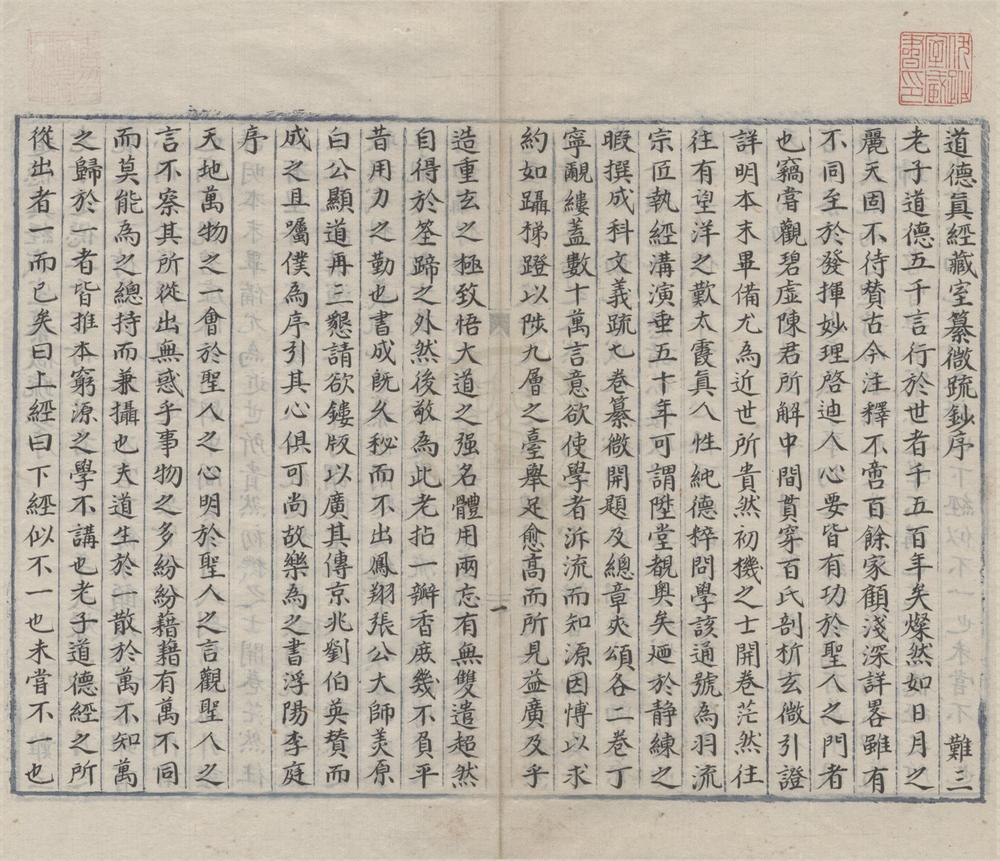 道德眞經藏室纂微疏鈔序 難三
老子道德五千言行於世者千五百年矣燦然如日月之
麗天固不待賛古今注釋不啻百餘家顧淺深詳畧雖有
不同至於發揮妙理啓迪人心要皆有功於聖人之門者
也竊嘗觀碧虛陳君所解中間貫穿百氏剖析玄微引證
詳明本末畢備尤為近世所貴然初機之士開卷茫然往
往有望洋之歎太霞眞人性純德粹問學該通號為羽流
宗匠執經溝演垂五十年可謂陞堂覩奥矣廼於静練之
暇撰成科文義疏七卷纂微開題及總章夾頌各二卷丁
寧覼縷蓋數十萬言意欲使學者泝流而知源因愽以求
約如躡梯蹬以陟九層之臺舉足愈髙而所見益廣及乎
造重玄之極致悟大道之强名體用兩忘有無雙遣超然
自得於筌蹄之外然後敬為此老拈一瓣香庻幾不負平
昔用力之勤也書成旣久秘而不出鳳翔張公大師羙原
白公顯道再三懇請欲鏤版以廣其傳京兆劉伯英賛而
成之且囑僕為序引其心俱可尚故樂為之書浮陽李庭
序
天地萬物之一會於聖人之心明於聖人之言觀聖人之
言不察其所從出無惑乎事物之多紛紛藉藉有萬不同
而莫能為之總持而兼攝也夫道生於一散於萬不知萬
之歸於一者皆推本窮源之學不講也老子道德經之所
從出者一而已矣曰上經曰下經似不一也未嘗不一也
一